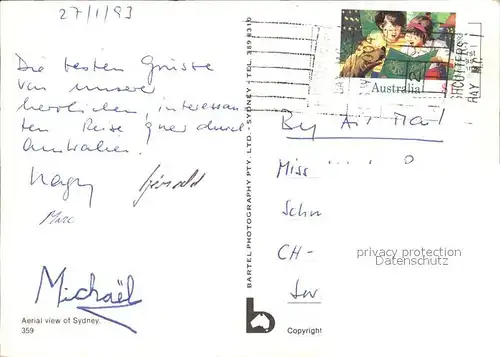 27/1/93
Die besten Grüsse
von unserer
herrlichen, interessan-
ten Reise quer durch
Australien.
Michaël
Marc
Aerial view of Sydney.
359
BARTEL PHOTOGRAPHY PTY. LTD. - SYDNEY - TEL. 389 8310
b
Copyright
Australia
By Air Mail
Miss
CH-
privacy protection
Datenschutz